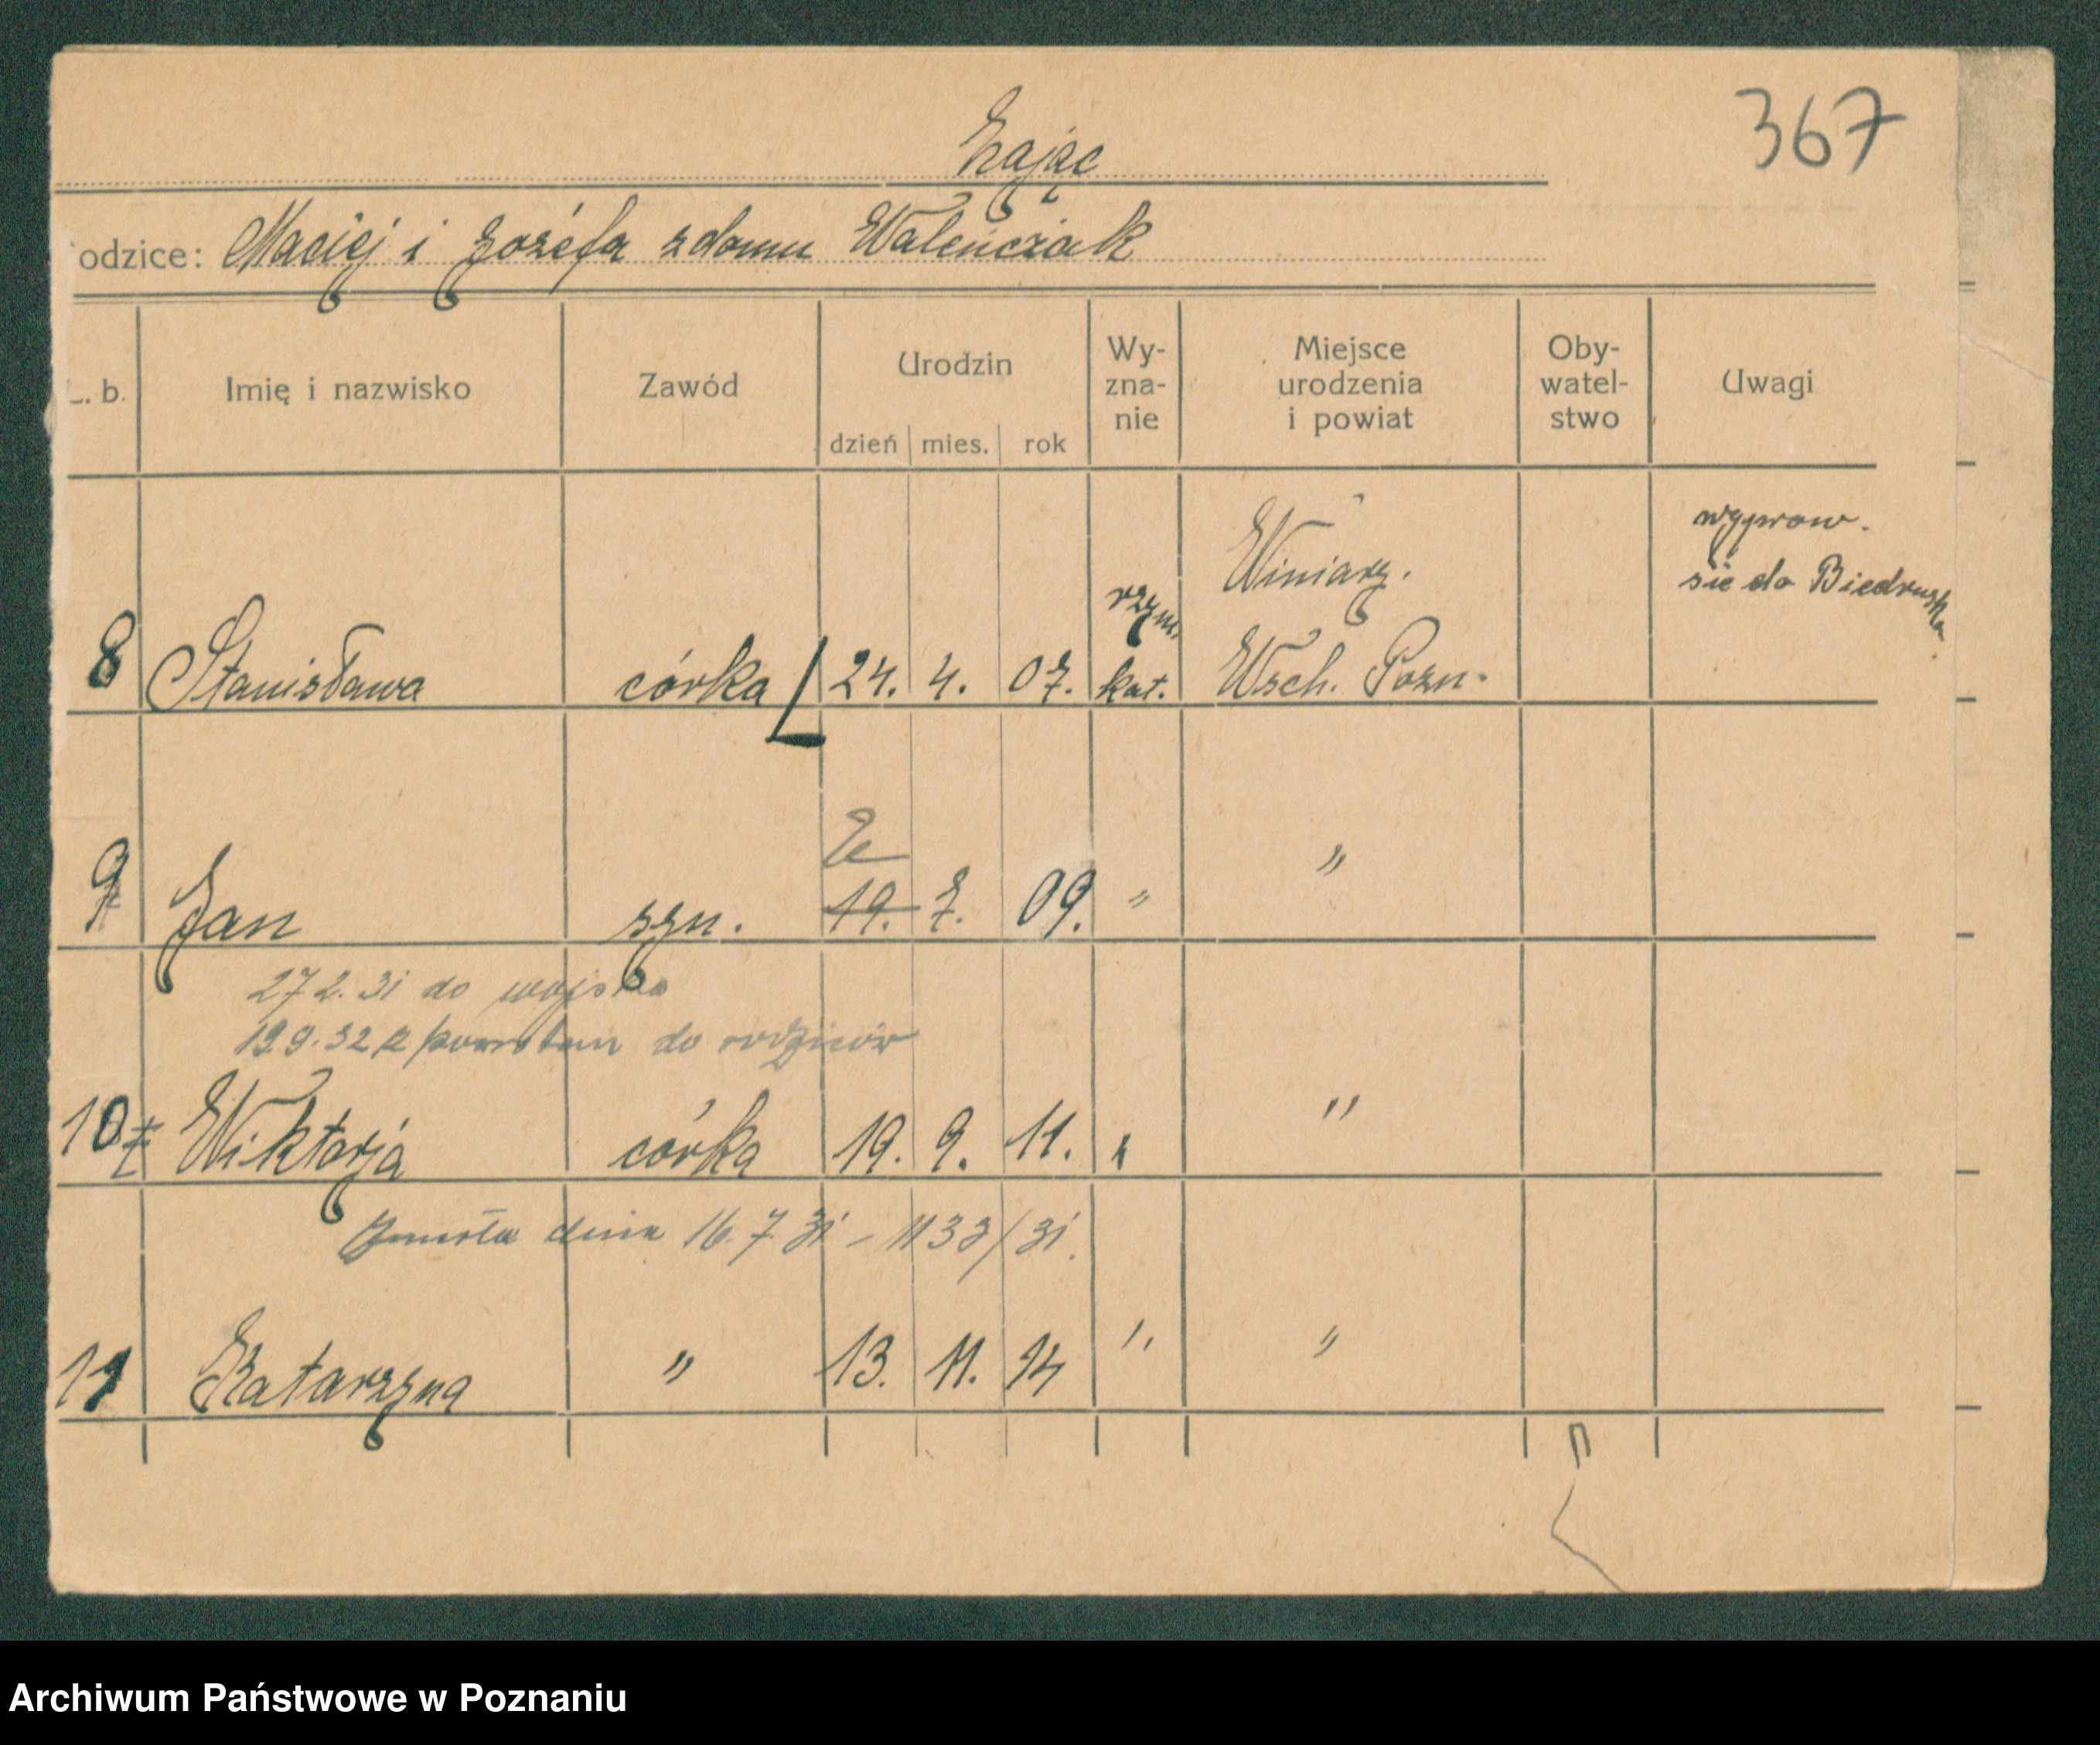 367
Zając
odzice: Maciej i Józefa z domu Waleńczak
L. b. Imię i nazwisko Zawód Urodzin dzień mies. rok Wy-zna-nie Miejsce urodzenia i powiat Oby-watel-stwo Uwagi
wyprow.
się do Biedruska.
Winiary.
rzym.
8 Stanisława córka 24. 4. 07. kat. Wsch. Pozn.
9 Jan syn. 19. 7. 09. " "
27 2. 31 do wojska
19.9.32 z powrotem do rodziców
10 Wiktorja córka 19. 9. 11. " "
Zmarła dnia 16.7.31 - 1133/31.
11 Katarzyna " 13. 11. 14 " "
Archiwum Państwowe w Poznaniu